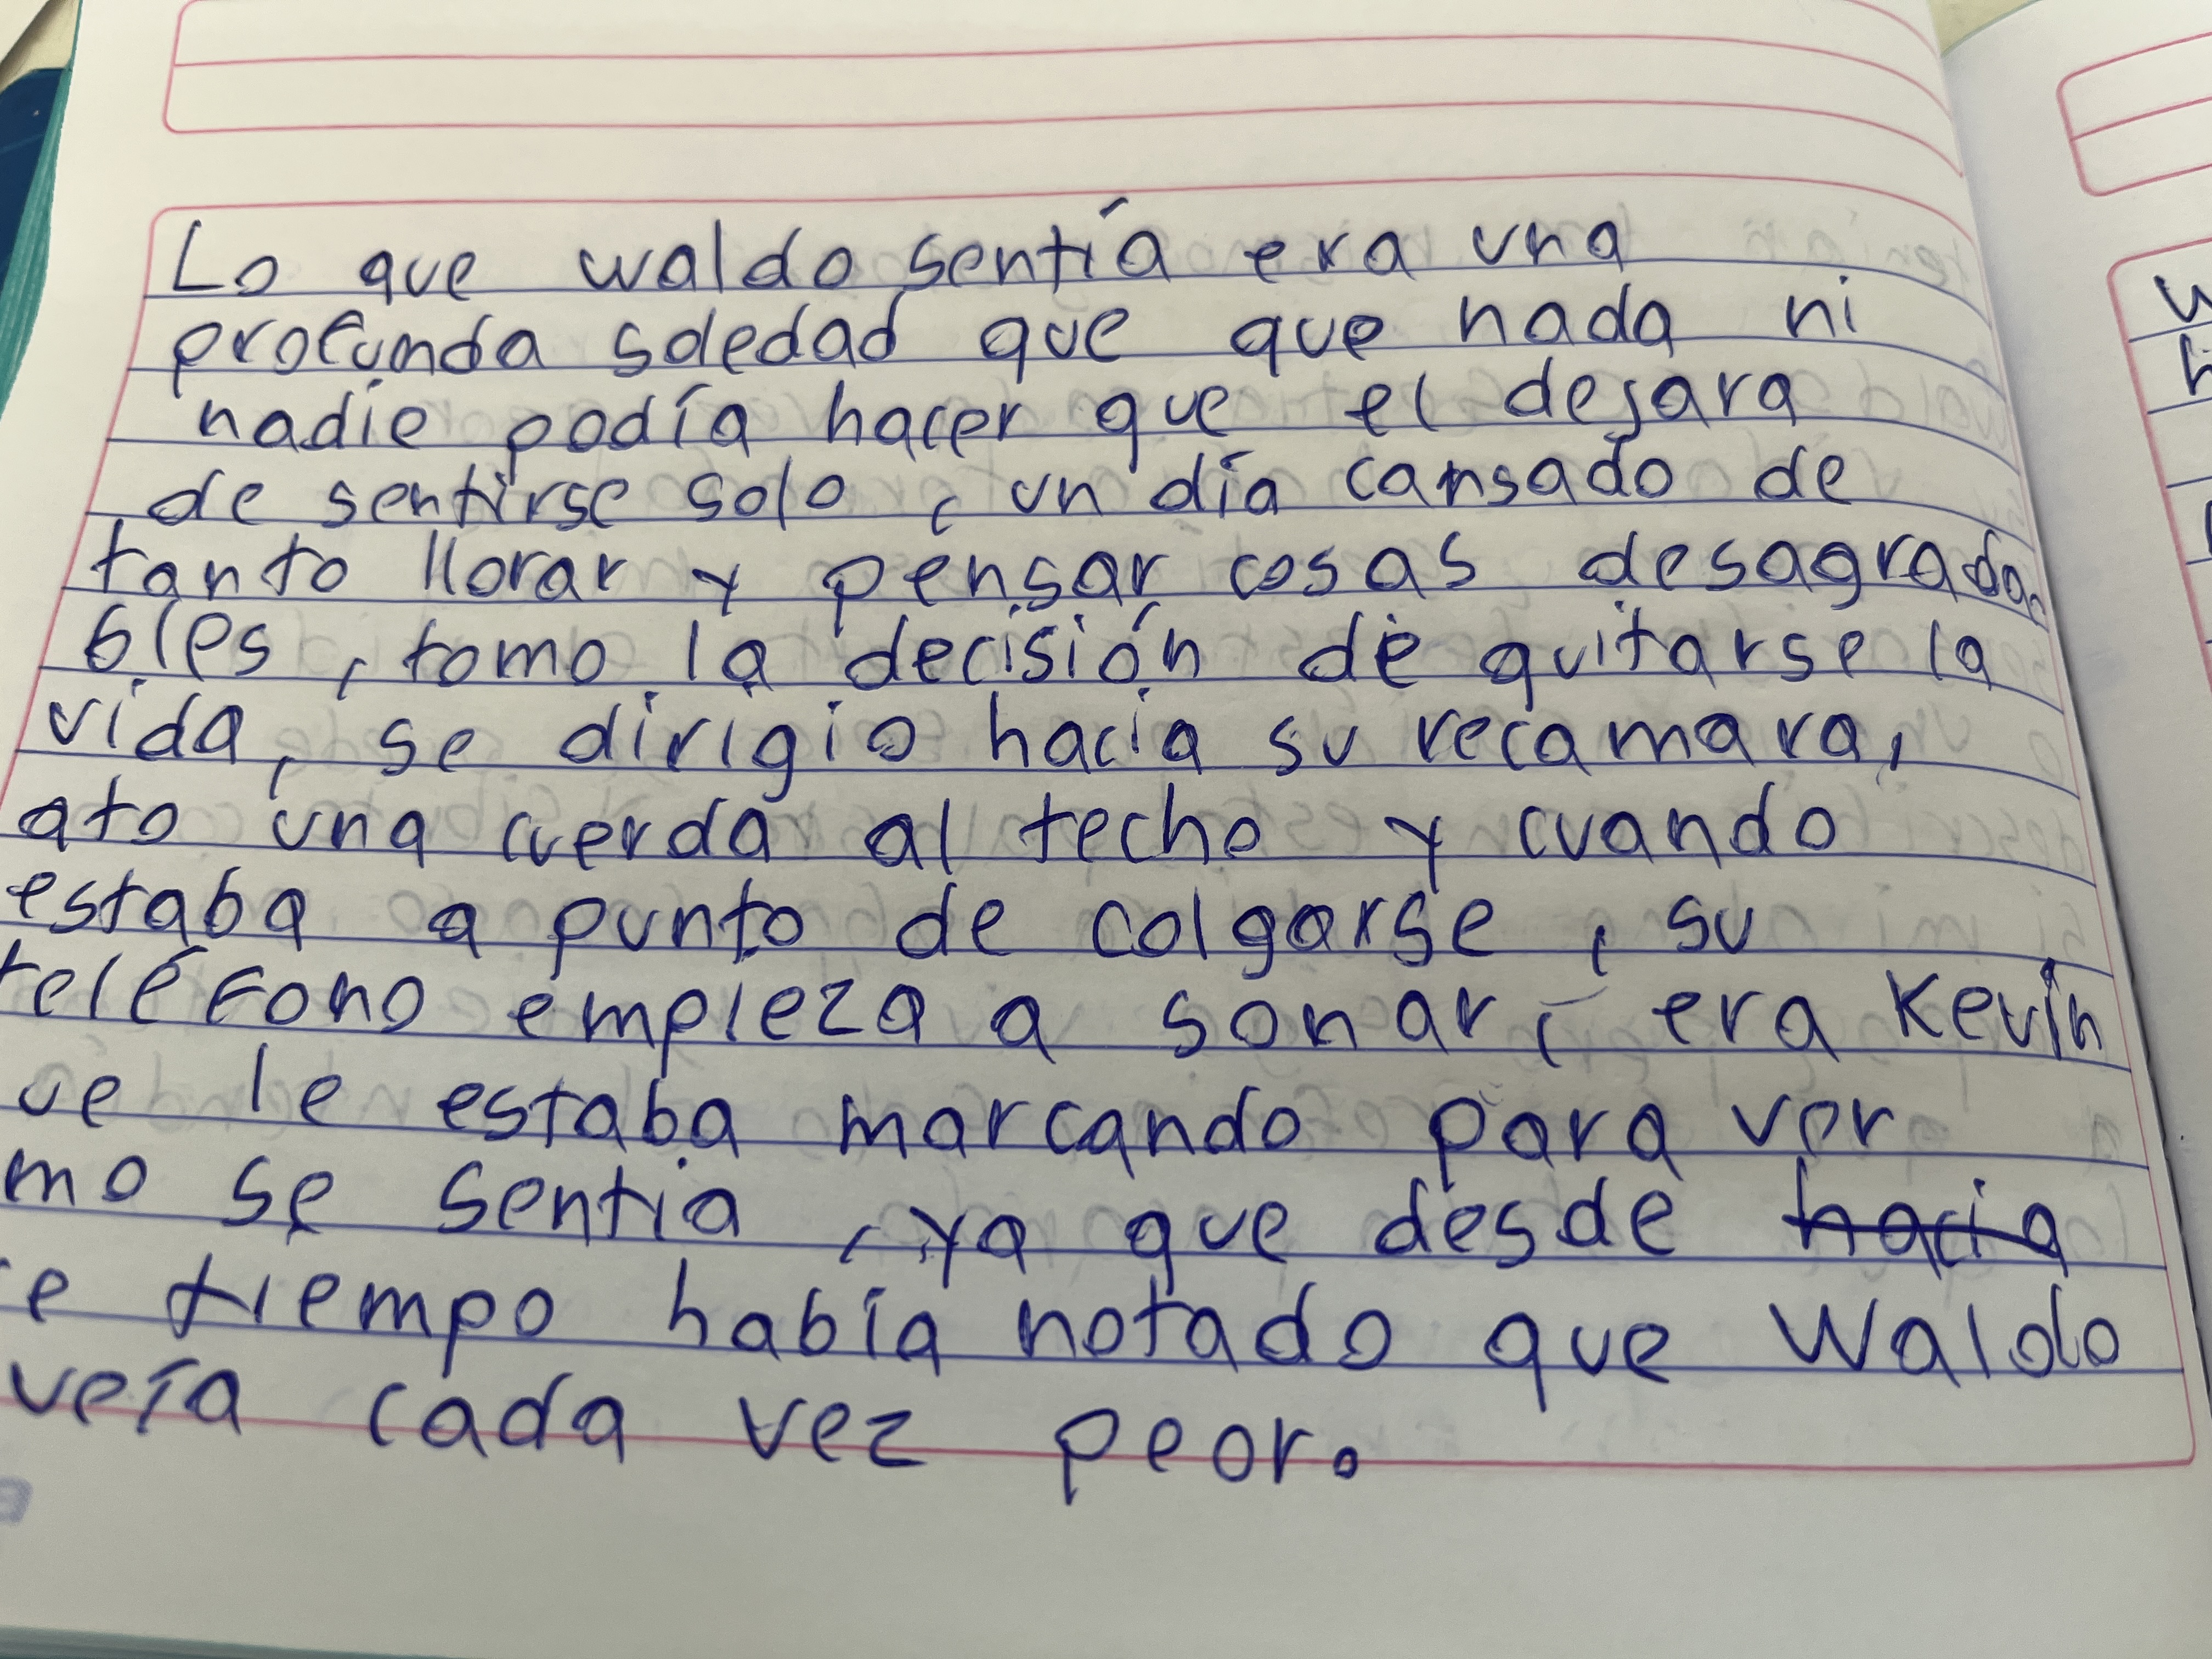 Lo que waldo sentía era una
profunda soledad que que nada ni
nadie podía hacer que el dejara
de sentirse solo, un día cansado de
tanto llorar y pensar cosas desagrada
bles, tomo la decisión de quitarse la
vida, se dirigio hacia su recamara,
ato una cuerda al techo y cuando
estaba a punto de colgarse, su
teléfono empieza a sonar, era Kevin
ue le estaba marcando para ver
mo se sentia, ya que desde hacia
e tiempo había notado que Waldo
veía cada vez peor.